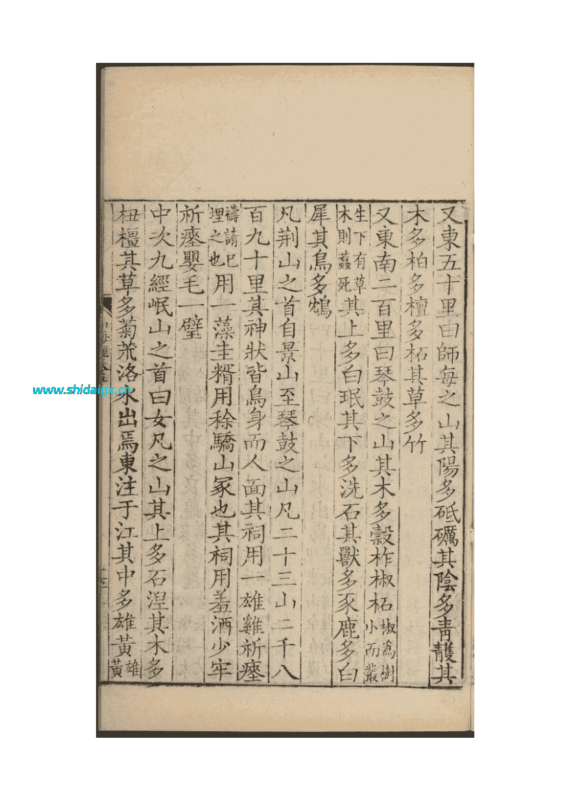 又東五十里曰師每之山其陽多砥礪其陰多青雘其
木多柏多檀多柘其草多竹
又東南二百里曰琴鼓之山其木多穀柞椒柘椒為樹小而叢
生下有草木則蠚死其上多白珉其下多洗石其獸多豕鹿多白
犀其鳥多鴆
凡荆山之首自景山至琴鼓之山凡二十三山二千八
百九十里其神狀皆鳥身而人面其祠用一雄雞祈瘞
禱請已埋之也用一藻圭糈用稌驕山冢也其祠用羞酒少牢
祈瘞嬰毛一璧
中次九經岷山之首曰女几之山其上多石涅其木多
杻橿其草多菊荒洛水出焉東注于江其中多雄黃雄黃
www.shidaigx.cn